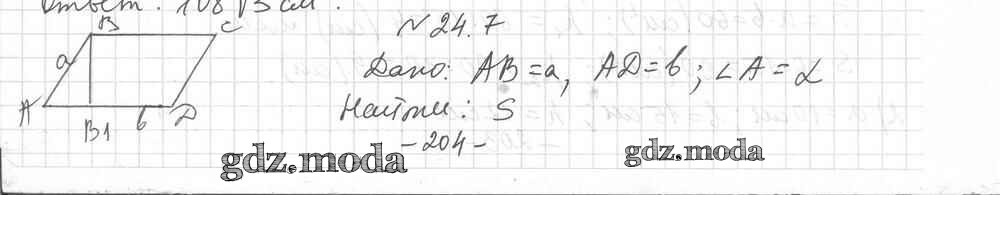 Ответ: 108√3 см².
N 24.7
Дано: AB = a, AD = b; ∠A = α
Найти: S
B C
a
A B1 b D
- 204 -
gdz.moda gdz.moda